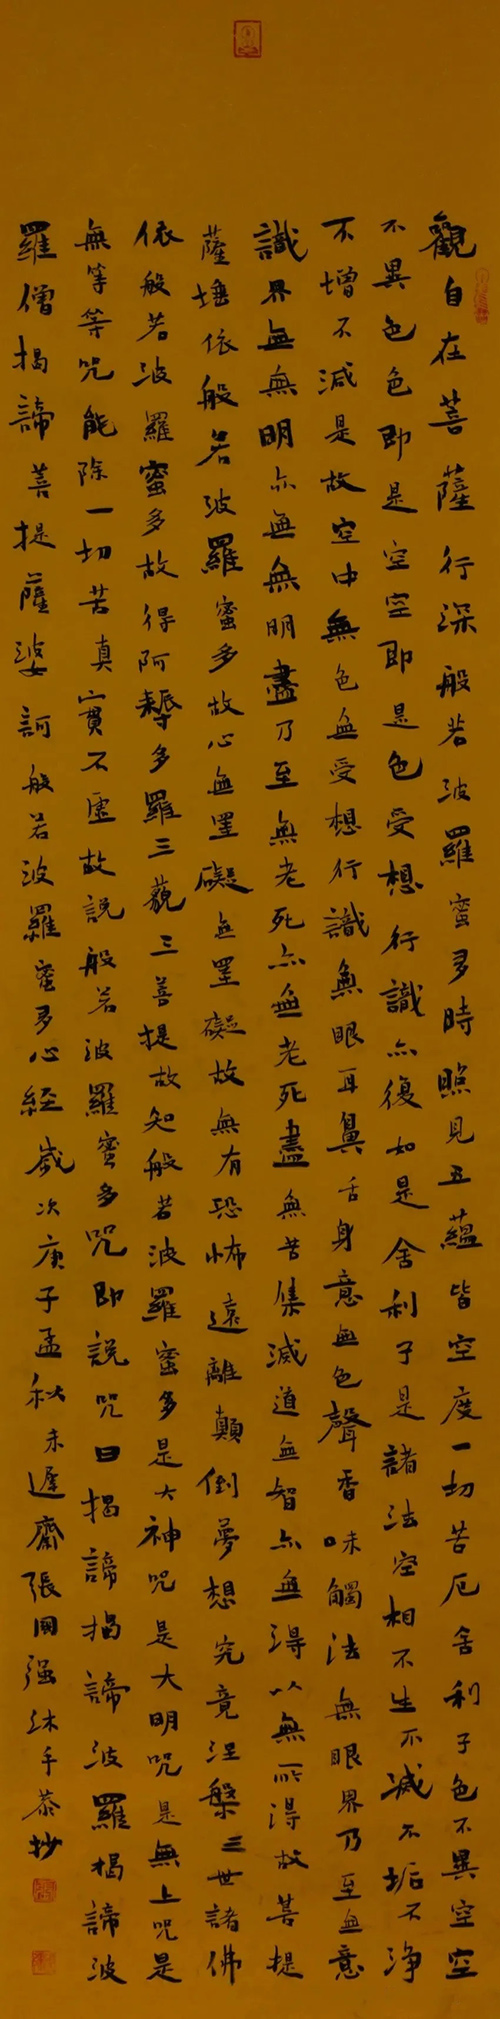 觀自在菩薩行深般若波羅蜜多時照見五蘊皆空度一切苦厄舍利子色不異空空
不異色色即是空空即是色受想行識亦復如是舍利子是諸法空相不生不滅不垢不淨
不增不減是故空中無色無受想行識無眼耳鼻舌身意無色聲香味觸法無眼界乃至無意
識界無無明亦無無明盡乃至無老死亦無老死盡無苦集滅道無智亦無得以無所得故菩提
薩埵依般若波羅蜜多故心無罣礙無罣礙故無有恐怖遠離顛倒夢想究竟涅槃三世諸佛
依般若波羅蜜多故得阿耨多羅三藐三菩提故知般若波羅蜜多是大神咒是大明咒是無上咒是
無等等咒能除一切苦真實不虛故說般若波羅蜜多咒即說咒曰揭諦揭諦波羅揭諦波
羅僧揭諦菩提薩婆訶般若波羅蜜多心經歲次庚子孟秋未遲齋張國强沐手恭抄